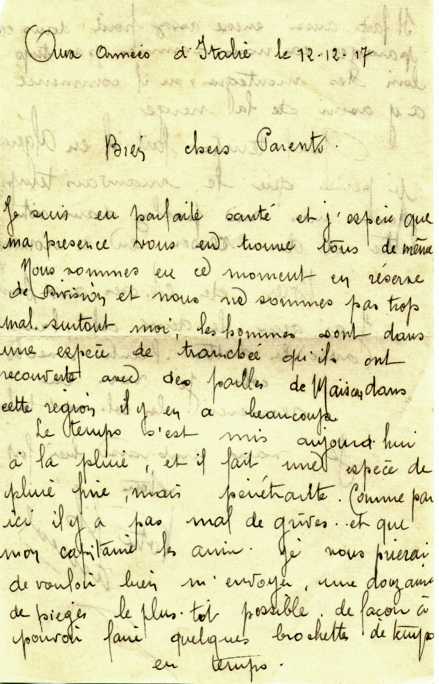 Aux armées d'Italie le 12-12-17
Bien chers Parents.
Je suis en parfaite santé et j'espère que
ma presence vous en trouve tous de même
Nous sommes en ce moment en réserve
de Division et nous ne sommes pas trop
mal. surtout moi, les hommes sont dans
une espèce de tranchée qu'ils ont
recouverte avec des pailles de Maïs, dans
cette région il y en a beaucoup
Le temps s'est mis aujourd'hui
à la pluie, et il fait une espèce de
pluie fine, mais pénétrante. Comme par
ici il y a pas mal de grives. et que
mon capitaine les aime. je vous prierai
de vouloir bien m'envoyer, une douzaine
de pièges le plus tôt possible. de façon à
pouvoir faire quelques brochettes de temps
en temps.